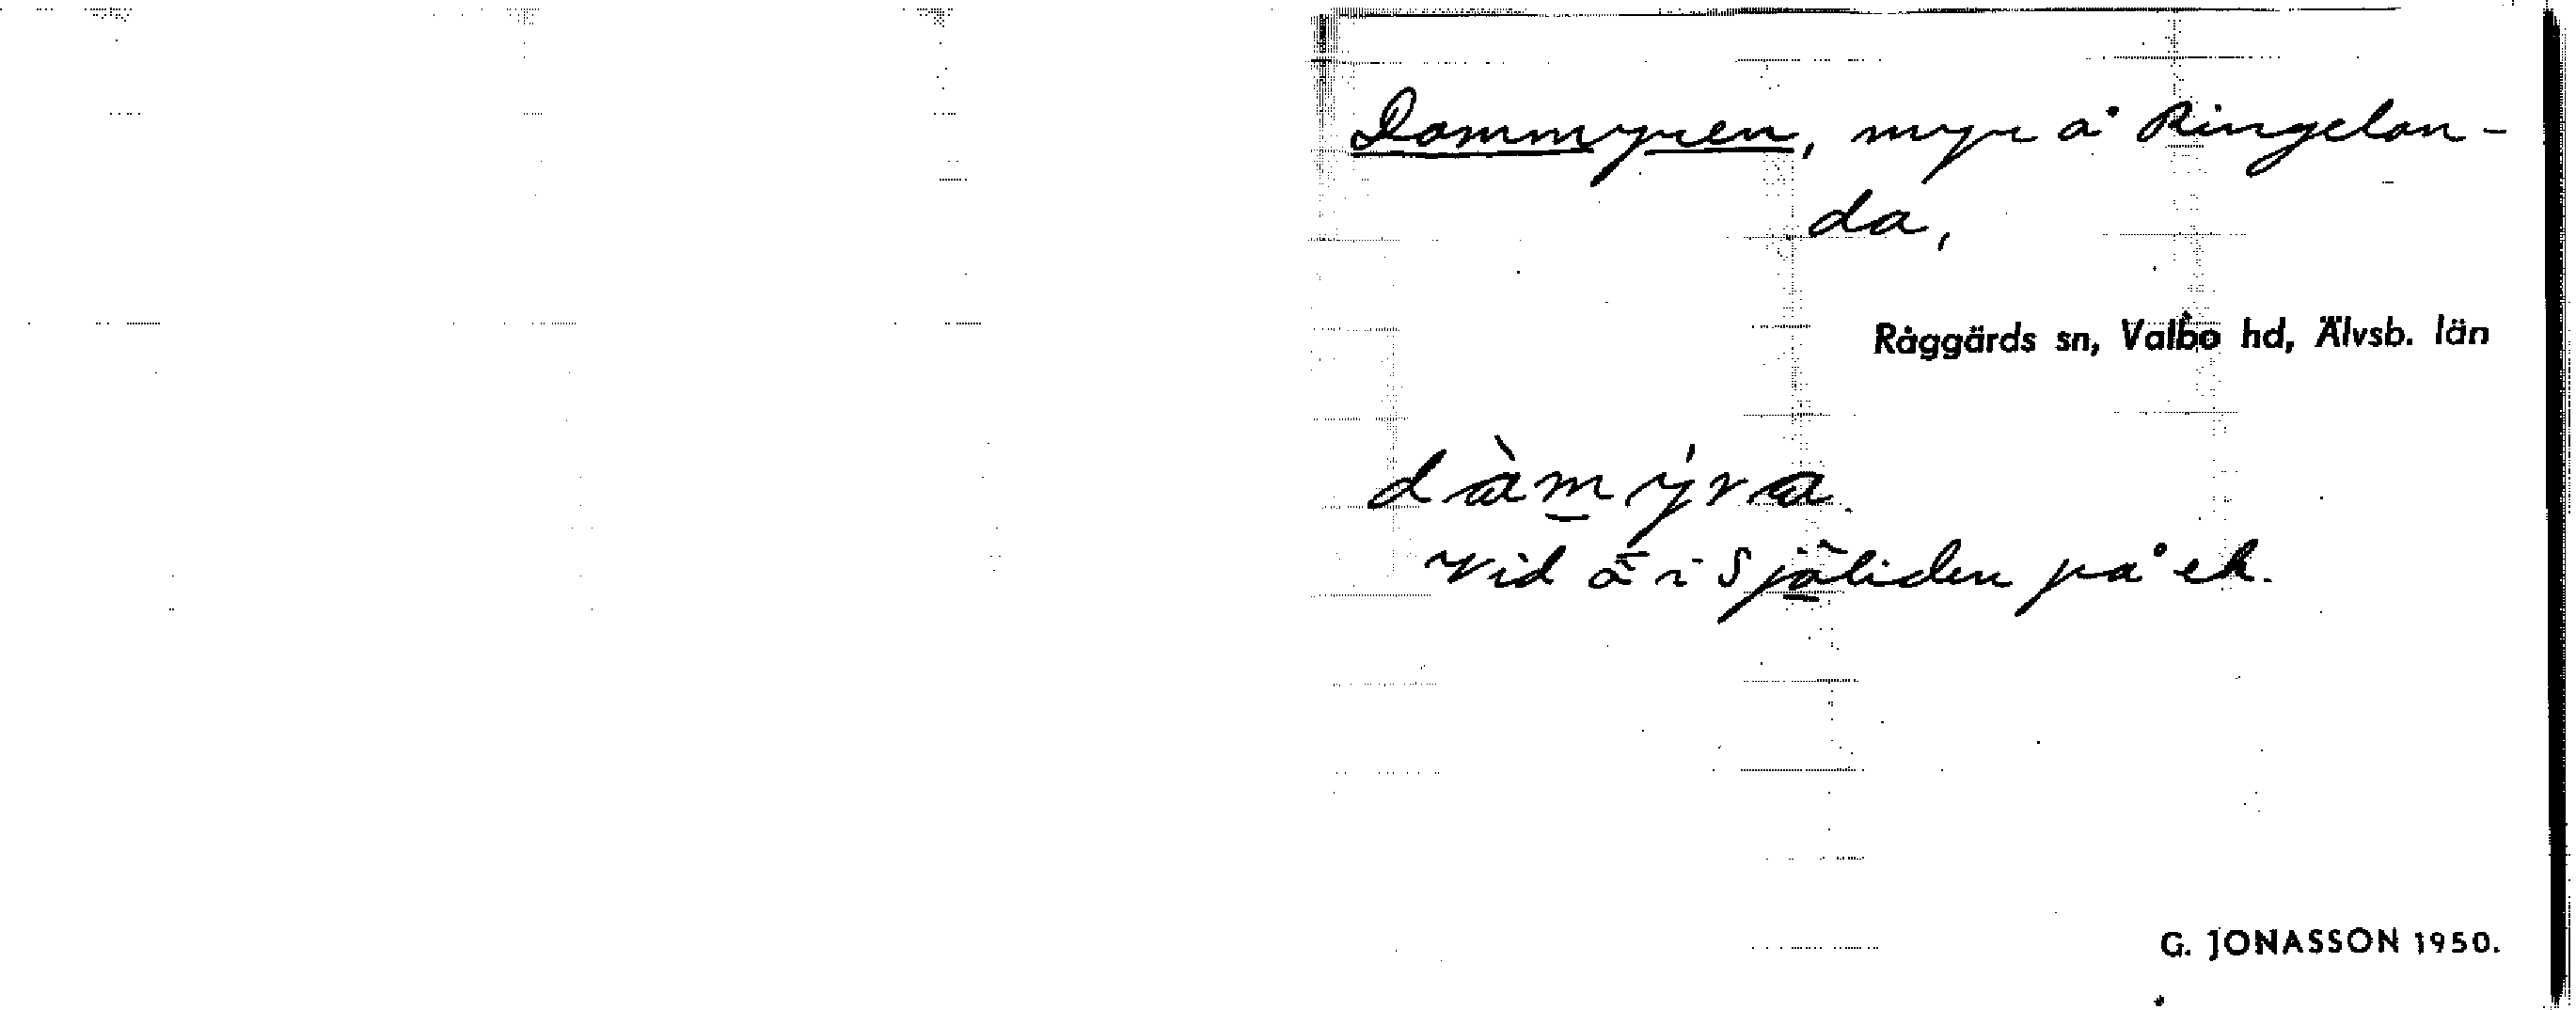 Dammyren, myr å Ringelan-
da,
Råggärds sn, Valbo hd, Älvsb. län
dàmýra.
Vid å i Sjöliden på ek.
G. JONASSON 1950.